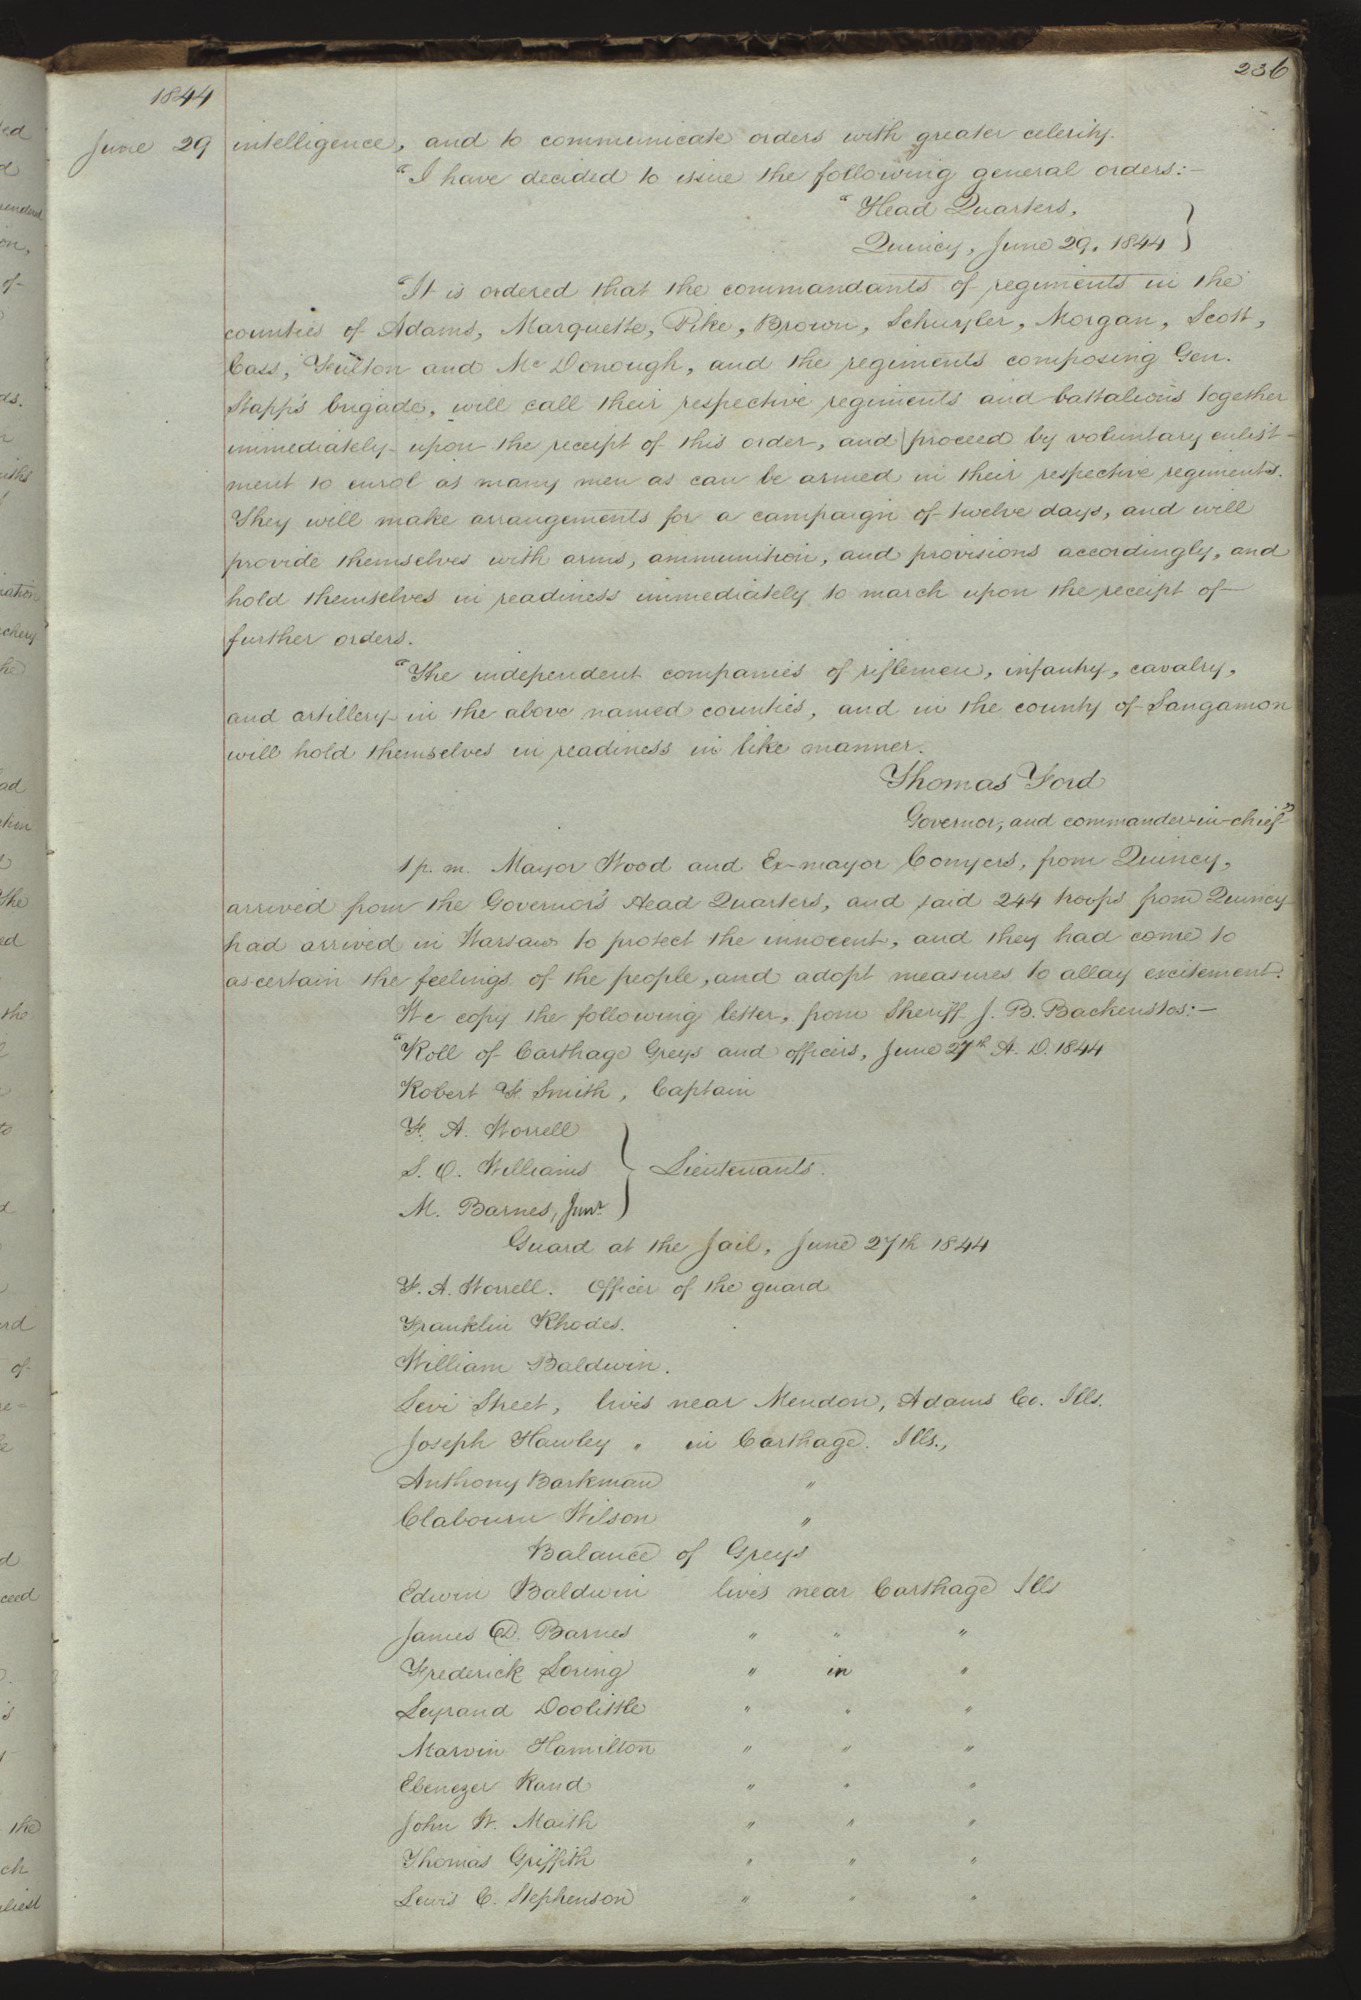 236
1844
June 29 intelligence, and to communicate orders with greater celerity.
"I have decided to issue the following general orders:—
"Head Quarters,
Quincy, June 29, 1844 }
"It is ordered that the commandants of regiments in the
counties of Adams, Marquette, Pike, Brown, Schuyler, Morgan, Scott,
Cass, Fulton and Mc Donough, and the regiments composing Gen.
Stapp's brigade, will call their respective regiments and battalions together
immediately upon the receipt of this order, and proceed by voluntary enlist-
ment to enrol as many men as can be armed in their respective regiments.
They will make arrangements for a campaign of twelve days, and will
provide themselves with arms, ammunition, and provisions accordingly, and
hold themselves in readiness immediately to march upon the receipt of
further orders.
"The independent companies of riflemen, infantry, cavalry,
and artillery in the above named counties, and in the county of Sangamon
will hold themselves in readiness in like manner.
Thomas Ford
Governor, and commander-in-chief"
1 p. m. Mayor Wood and Ex-mayor Conyers, from Quincy,
arrived from the Governor's Head Quarters, and said 244 troops from Quincy
had arrived in Warsaw to protect the innocent, and they had come to
ascertain the feelings of the people, and adopt measures to allay excitement.
We copy the following letter, from Sheriff J. B. Backenstos:—
"Roll of Carthage Greys and officers, June 27th A. D. 1844
Robert F. Smith, Captain
F. A. Worrell
S. O. Williams } Lieutenants.
M. Barnes, Junr.
Guard at the Jail, June 27th 1844
F. A. Worrell. Officer of the guard
Franklin Rhodes.
William Baldwin.
Levi Street, lives near Mendon, Adams Co. Ills.
Joseph Hawley " in Carthage. Ills.,
Anthony Barkman "
Clabourn Wilson "
Balance of Greys
Edwin Baldwin lives near Carthage Ills
James D. Barnes " " "
Frederick Loring " in "
Leyrand Doolittle " " "
Marvin Hamilton " " "
Ebenezer Rand " " "
John W. Maith " " "
Thomas Griffith " " "
Lewis C. Stephenson " " "